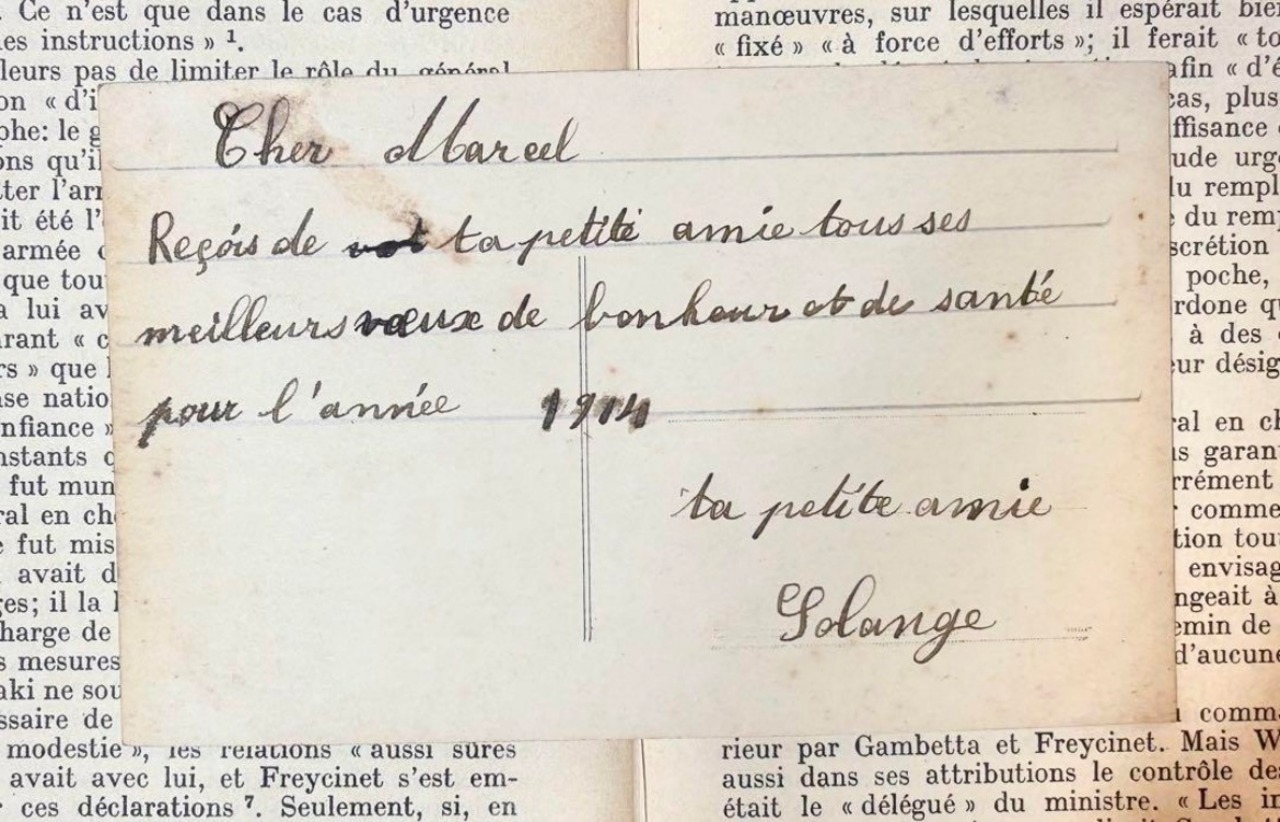 . Ce n'est que dans le cas d'urgence
es instructions » ¹.
leurs pas de limiter le rôle du général
on « d'i
phe: le g
ons qu'il
tter l'arm
it été l'
armée
que tou
a lui av
rant « c
rs » que
se natio
nfiance »
nstants
fut mun
ral en ch
fut mis
avait d
es; il la
harge de
s mesures
aki ne sou
ssaire de
modestie », les relations « aussi sûres
avait avec lui, et Freycinet s'est em-
ces déclarations ⁷. Seulement, si, en
Cher Marcel
Reçois de vot ta petite amie tous ses
meilleurs vœux de bonheur et de santé
pour l'année 1914
ta petite amie
Solange
manœuvres, sur lesquelles il espérait bien
« fixé » « à force d'efforts »; il ferait « to
afin « d'é
cas, plus
ffisance
ude urg
lu rempl
du rem
scrétion
poche,
rdone q
à des
eur désig
al en ch
s garan
rrément
comme
tion tou
envisag
ngeait à
emin de
d'aucune
comma
rieur par Gambetta et Freycinet. Mais W
aussi dans ses attributions le contrôle de
était le « délégué » du ministre. « Les in